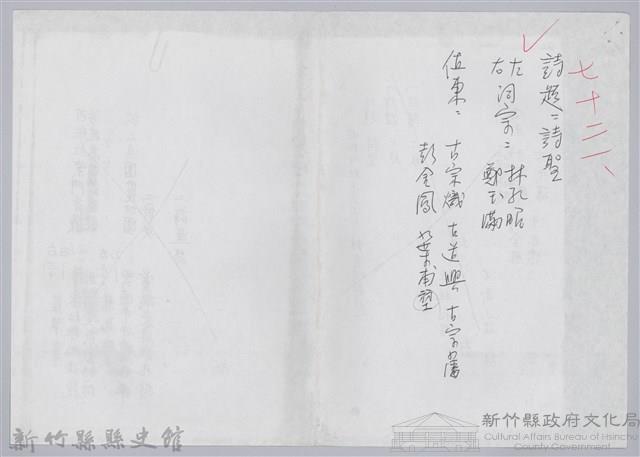 七十二、
詩題：詩聖
左詞宗：林孔昭
右　　　鄭玉滿
值東：古宗熾 古道興 古宗藩
彭金鳳 葉甫塱
新竹縣縣史館
新竹縣政府文化局
Cultural Affairs Bureau of Hsinchu
County Government